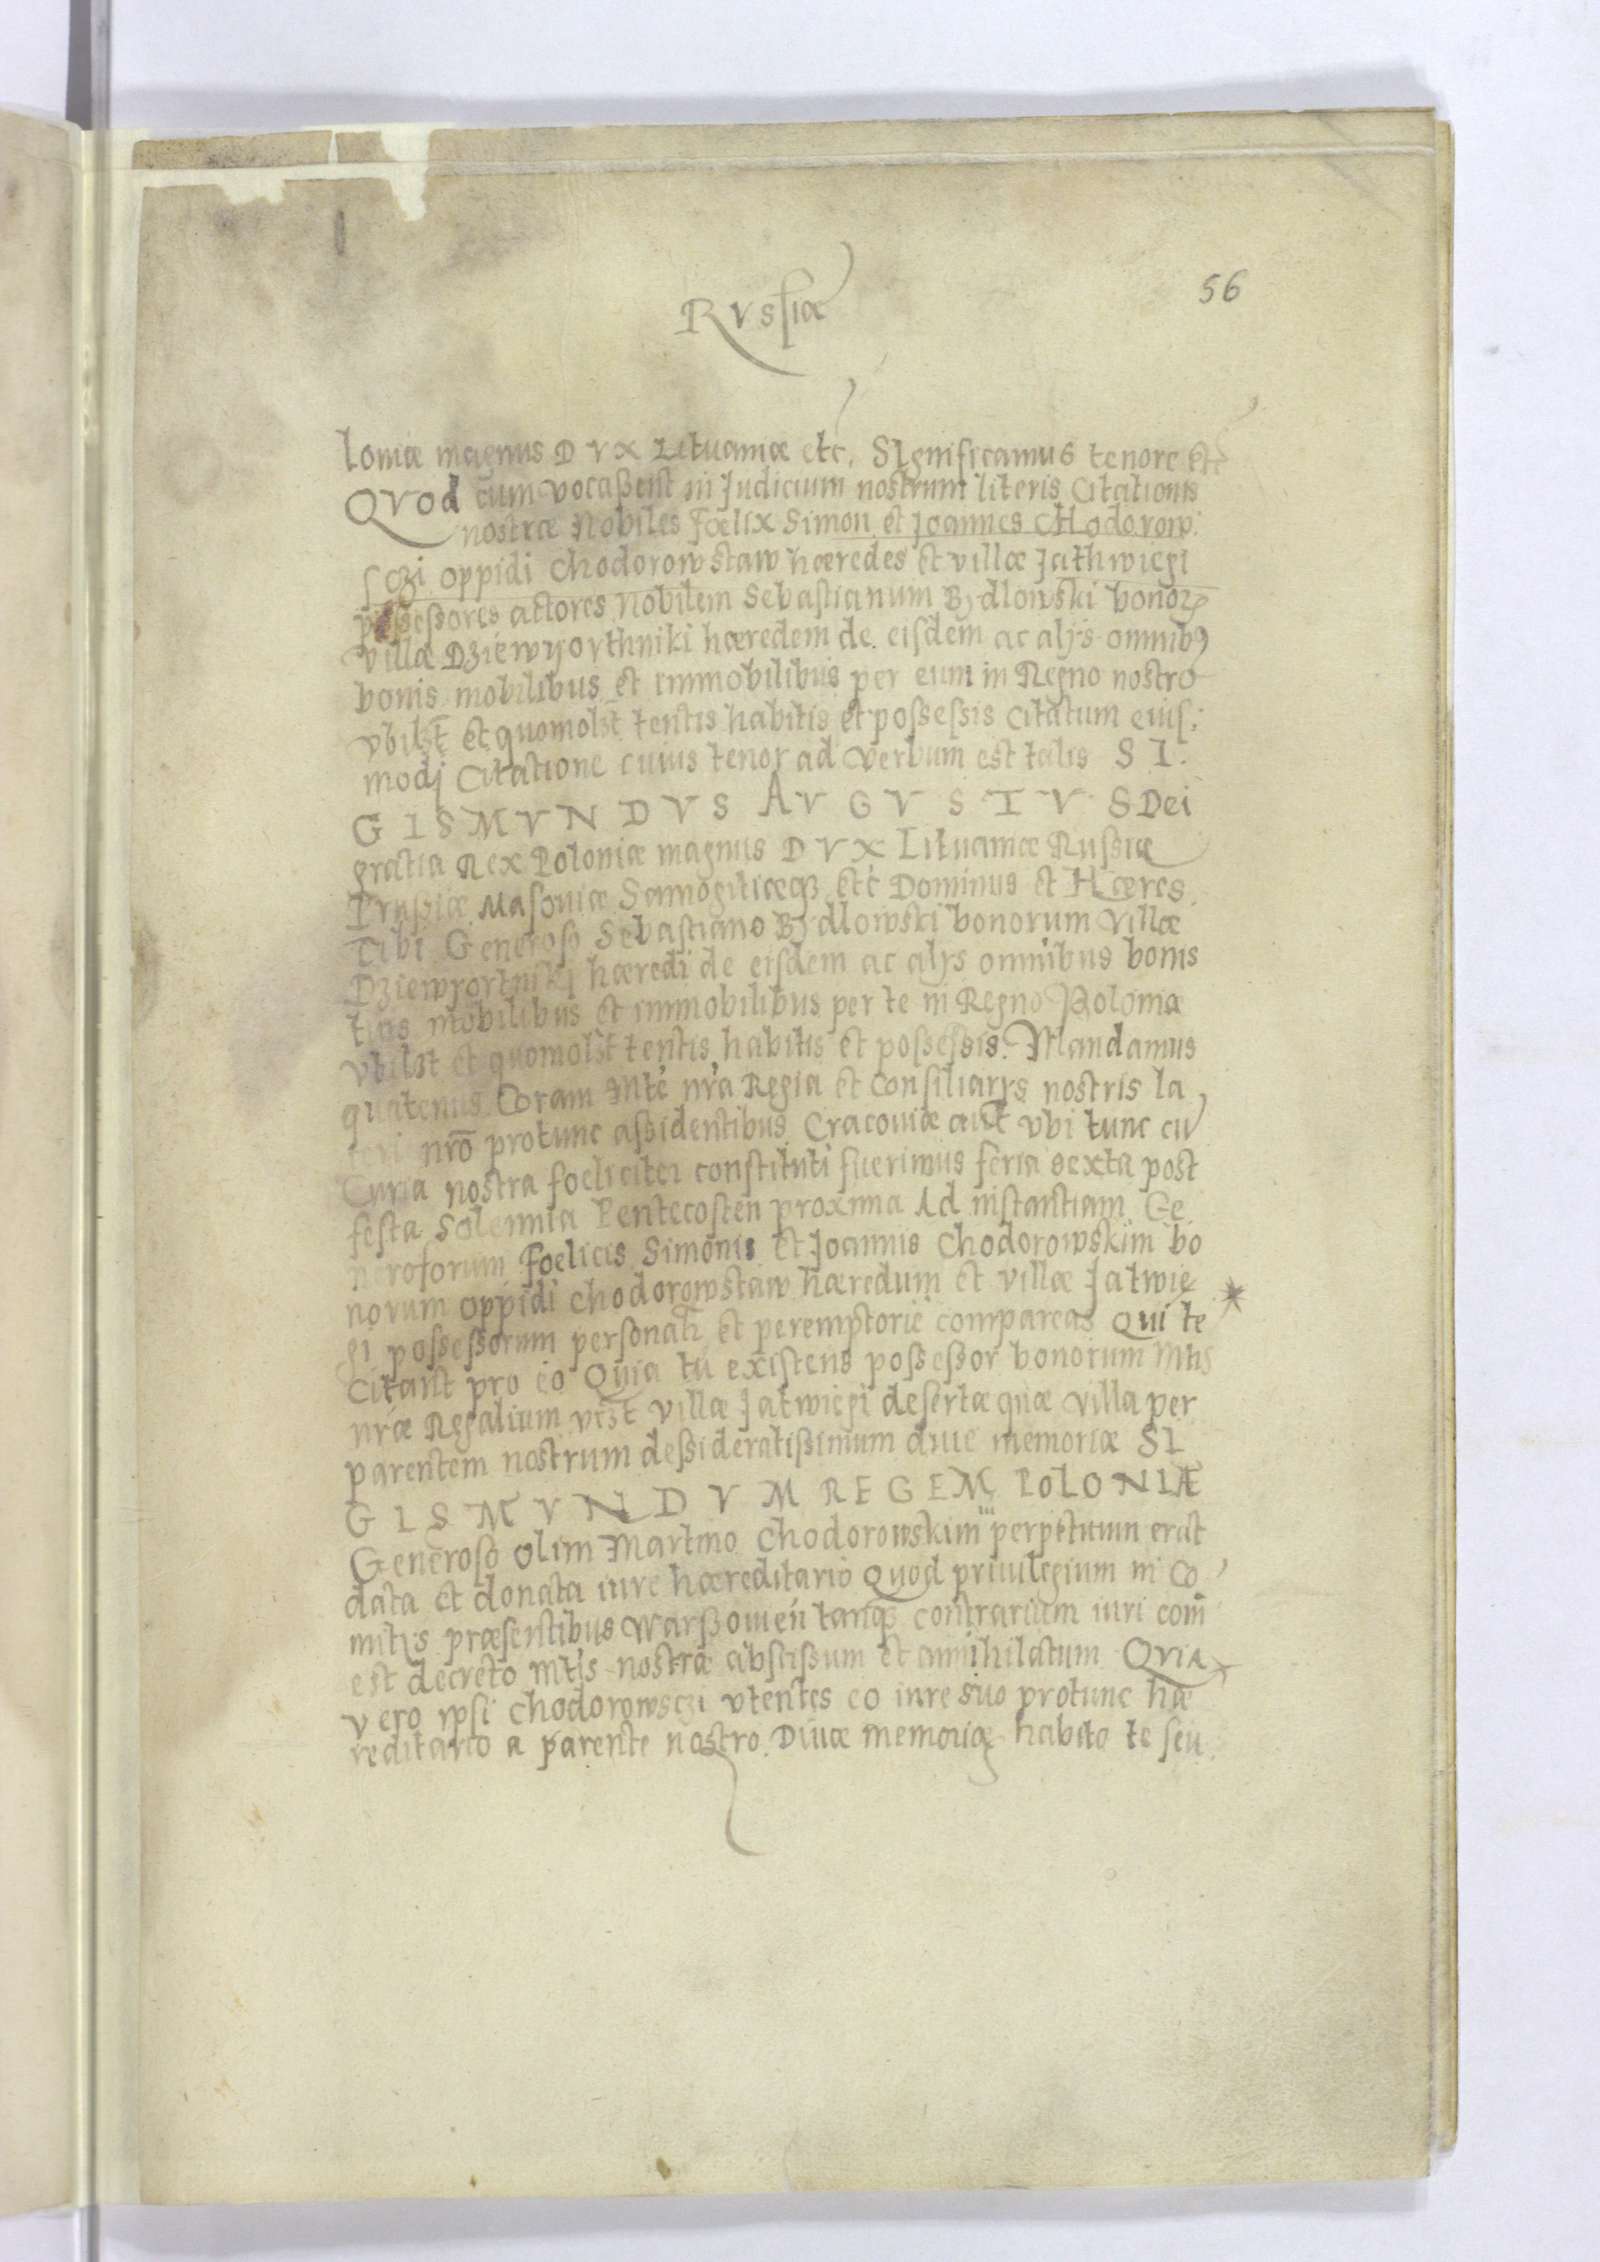 56
RVSsiæ
loniæ magnus DVX Lituaniæ etc, SIgnificamus tenore etc
QVod cum vocaßent in Judicium nostrum literis Citationis
nostræ Nobiles Fœlix Simon et Joannes CHodorow:
sczi oppidi Chodorowstaw hæredes et villæ Jathwiegi
possessores actores Nobilem Sebastianum Bydlowski bonoꝝ
villæ Dziewyothniki hæredem de eisdem ac alijs omnibꝰ
bonis mobilibus et immobilibus per eum in Regno nostro
vbilꝫt et quomolꝫt tentis habitis et possessis Citatum eius:
modj Citatione cuius tenor ad verbum est talis SI.
GISMVNDVS AVGVSTVS Dei
gratia Rex Poloniæ magnus DVX Lituaniæ Russiæ
Prussiæ Masoviæ Samogitiæqꝫ etc Dominus et Hæres
Tibi Generoso Sebastiano Bydlowski bonorum Villæ
Dziewyortniki hæredi de eisdem ac alijs omnibus bonis
tuis mobilibus et immobilibus per te in Regno Poloniæ
vbilꝫt et quomolꝫt tentis habitis et possessis. Mandamus
quatenus Coram Mte nra Regia et Consiliarijs nostris la
teri nro protunc assidentibus Cracoviæ aut vbi tunc cu
Curia nostra foeliciter constituti fuerimus feria sexta post
festa Solennia Pentecosten proxima Ad instantiam Ge
nerosorum Foelicis Simonis et Joannis Chodorowskim bo
norum oppidi Chodorowstaw hæredum et villæ Jatwie
gi possessorum personalr et peremptorie compareas Qui te
citant pro eo Quia tu existens possessor bonorum Mtis
nræ Regalium vcꝫt villæ Jatwiegi desertæ quæ villa per
parentem nostrum dessideratissimum diue memoriæ SI
GISMVNDVM REGEM POLONIÆ
Generoso olim Martino Chodorowskim perpetuum erat
data et donata iure hæreditario Quod priuilegium in Co
mitijs præsentibus Warßouien tanqꝫ contrarium iuri com
est decreto Mtis nostræ abscissum et annihilatum QVia
vero ipsi Chodorowsczi vtentes eo iure suo protunc hæ
reditario a parente nostro Diuæ memoriæ habito te seu